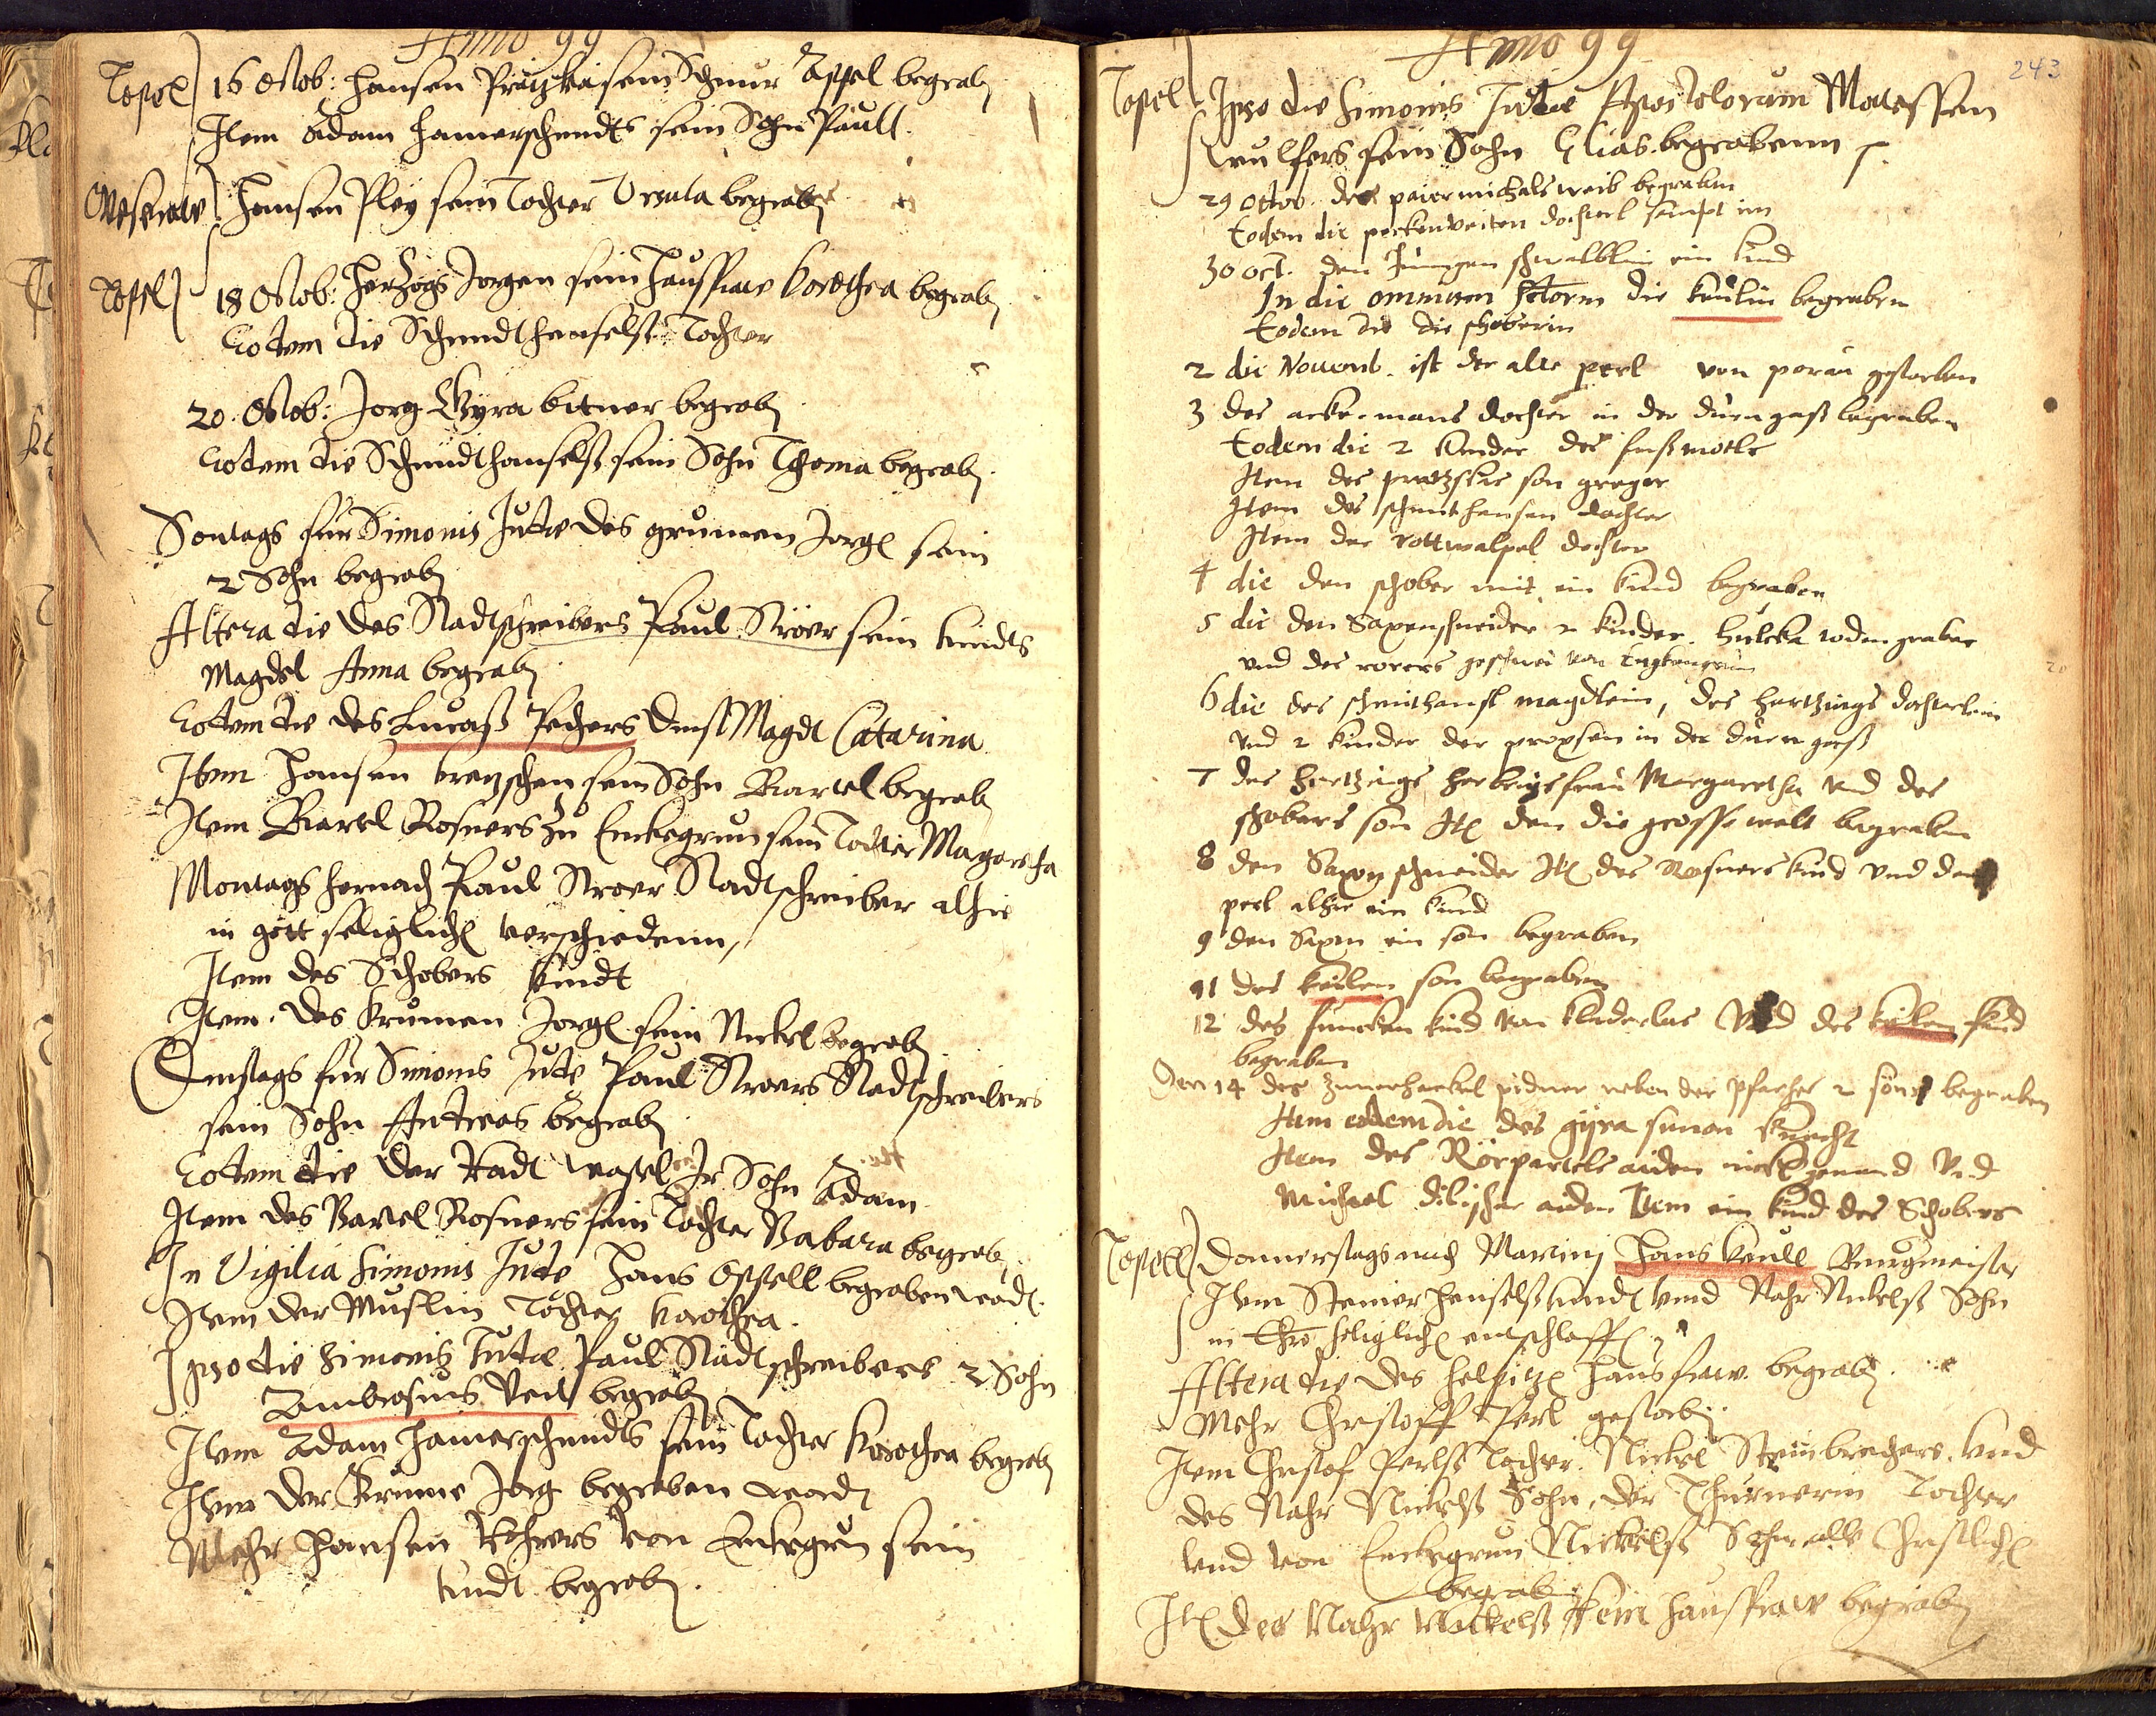 Anno 99
Topel 16 Octob: Hansen sein Schnur Appel begrab
Item Adam Hamerschmidts sein Sohn Paull.
Hansen Pley sein Tochter Ursula begrab
Topel 18 Octob: Herzogs Jorgen sein Hausfraw Dorothea begrab
Eodem die Schmidthanselß Tochter
20. Octob: Jorg Gyra bitner begrab
Eodem die Schmidthanselß sein Sohn Thoma begrab
Sontags für Simonis Judae des grumen Jorg sein
2 Sohn begrab
Altera die des Stadtschreibers Paul Ströer sein kindts
Magdel Anna begrab
Eodem die des Lucaß Pechers dinst Magdt Catarina
Item Hansen sein Sohn Bartel begrab
Item Bartel Rosners zu Enkegrun sein Tochter Magaretha
Montags hernach Paul Stroer Stadtschreiber alhie
in gott seliglich verschiedenn,
Item des Schobers kindt
Item des krumen Jorg sein Nickel begrab
Dinstags für Simonis Jude Paul Stroers Stadtschreibers
sein Sohn Andreas begrab
Eodem die der Ir Sohn Adam
Item des Bartel Rosners sein Tochter Babara begrab
In Vigilia Simonis Jude Hans begraben wordt
Item der Muslin Tochter Dorothea.
Ipso die Simonis Judae Paul Stadtschreibers 2 Sohn
Ambrosius Veit begrab
Item Adam Hamerschmidts sein Tochter Dorothea begrab
Item der Krume Jorg begraben wordt
Mehr Hansen Rohrers von Enkegrun sein
kindt begrab.
Anno 99
243
Topel Ipso die Simonis Judae Apostolorum
Wulfers sein Sohn Elias begrabenn
29 octob. des paiermichals weib begraben
Eodem die dochterl sampt im
30 oct. den Jungen ein kind
In die omnium Sctorum die keulin begraben
Eodem die die schoberin
2 die Novemb. ist der alte perl von porau gestorben
3 des ackermans dochter in der durn gass begraben
Eodem die 2 kinder des
Item des son greger
Item des schmithansen dochter
Item der rottwalpel dochter
4 die den schober mit ein kind begraben
5 die den Saxenschneider 2 kinder. todengraber
und des rorers von Engkengrun
6 die des schmithansl magdlein, des hertzings dochterlein
und 2 kinder der in der durn gass
7 des hertzings herbrigsfrau Margaretha und des
schobers son It den die grosse welt begraben
8 den Saxenschneider It des Rosners kind und den
perl alhie ein kind
9 den Saxen ein son begraben
11 des keulen son begraben
12 des kind von und des keulen kind
begraben
Den 14 des pidner neben der pfarher 2 söne begraben
Item eodem die des gyra simon knecht
Item des Rörpartels aiden genand und
Michael aiden Item ein kind des Schobers
Topell Donnerstags nach Martinj Hans Keull Burgmeister
Item Steiner Henselß kindt unnd Nahr Nickelß Sohn
in Chro seliglich entschlaff
Altera die des hausfraw begrab.
Mehr Christoff Perl gestorb.
Item Christof Perlß Tochter. Nickel Steinbrechers. und
des Nahr Nickelß Sohn, der Thurnerin Tochter
und von Enkegrun Nickelß Sohn alle Christlich
begrab
It des Nahr Nickelß sein hausfraw begrab